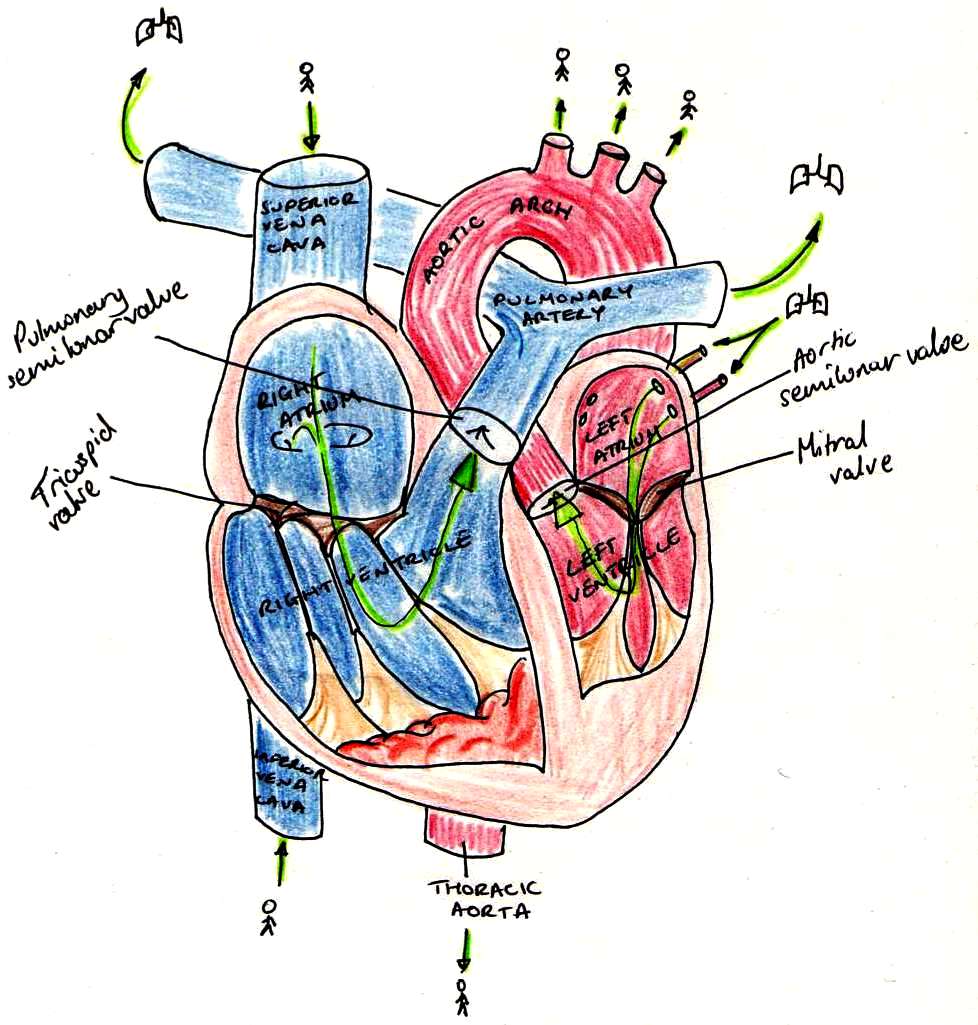 SUPERIOR
VENA
CAVA
AORTIC ARCH
PULMONARY
ARTERY
Pulmonary
semilunar valve
Aortic
semilunar valve
RIGHT
ATRIUM
LEFT
ATRIUM
Mitral
valve
Tricuspid
valve
RIGHT VENTRICLE
LEFT
VENTRICLE
INFERIOR
VENA
CAVA
THORACIC
AORTA